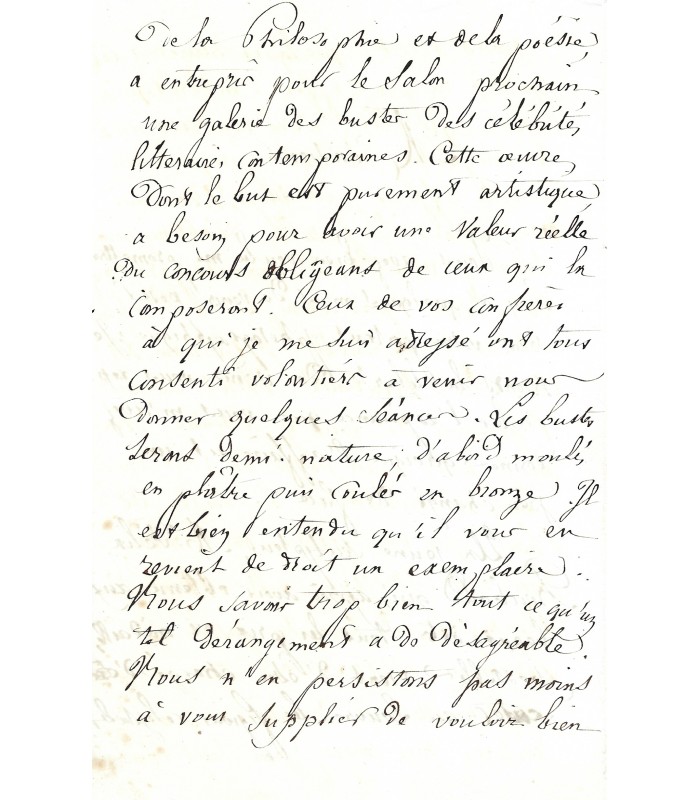 De la Philosophie et de la poésie,
a entrepris pour le salon prochain
une galerie des bustes des célébrités
littéraires contemporaines. Cette œuvre,
Dont le but est purement artistique,
a besoin pour avoir une valeur réelle
Du concours obligeant de ceux qui la
composeront. Ceux de vos confrères
à qui je me suis adressé ont tous
consenti volontiers à venir nous
donner quelques séances. Les bustes
seront demi-nature, d'abord moulés
en plâtre puis coulés en bronze. Il
est bien entendu qu'il vous en
revient de droit un exemplaire.
Nous savons trop bien tout ce qu'un
tel dérangement a de désagréable.
Nous n'en persistons pas moins
à vous supplier de vouloir bien